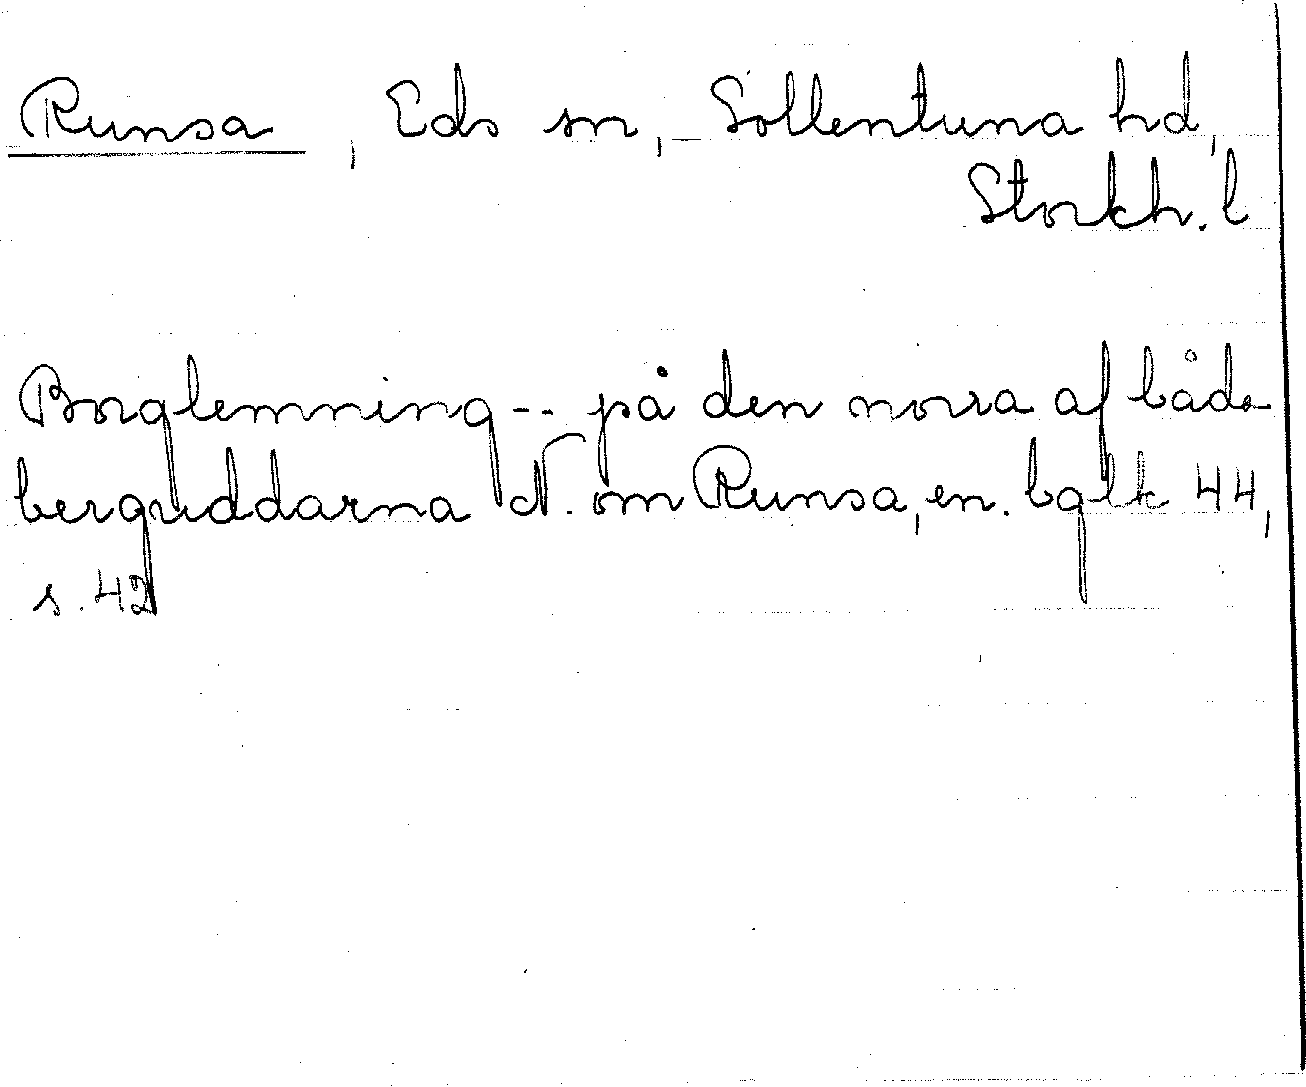 Runsa, Eds sn, Sollentuna hd,
Stockh. l
Borglemning -- på den norra af båda
berguddarna N. om Runsa, en. bglk 44,
s. 42